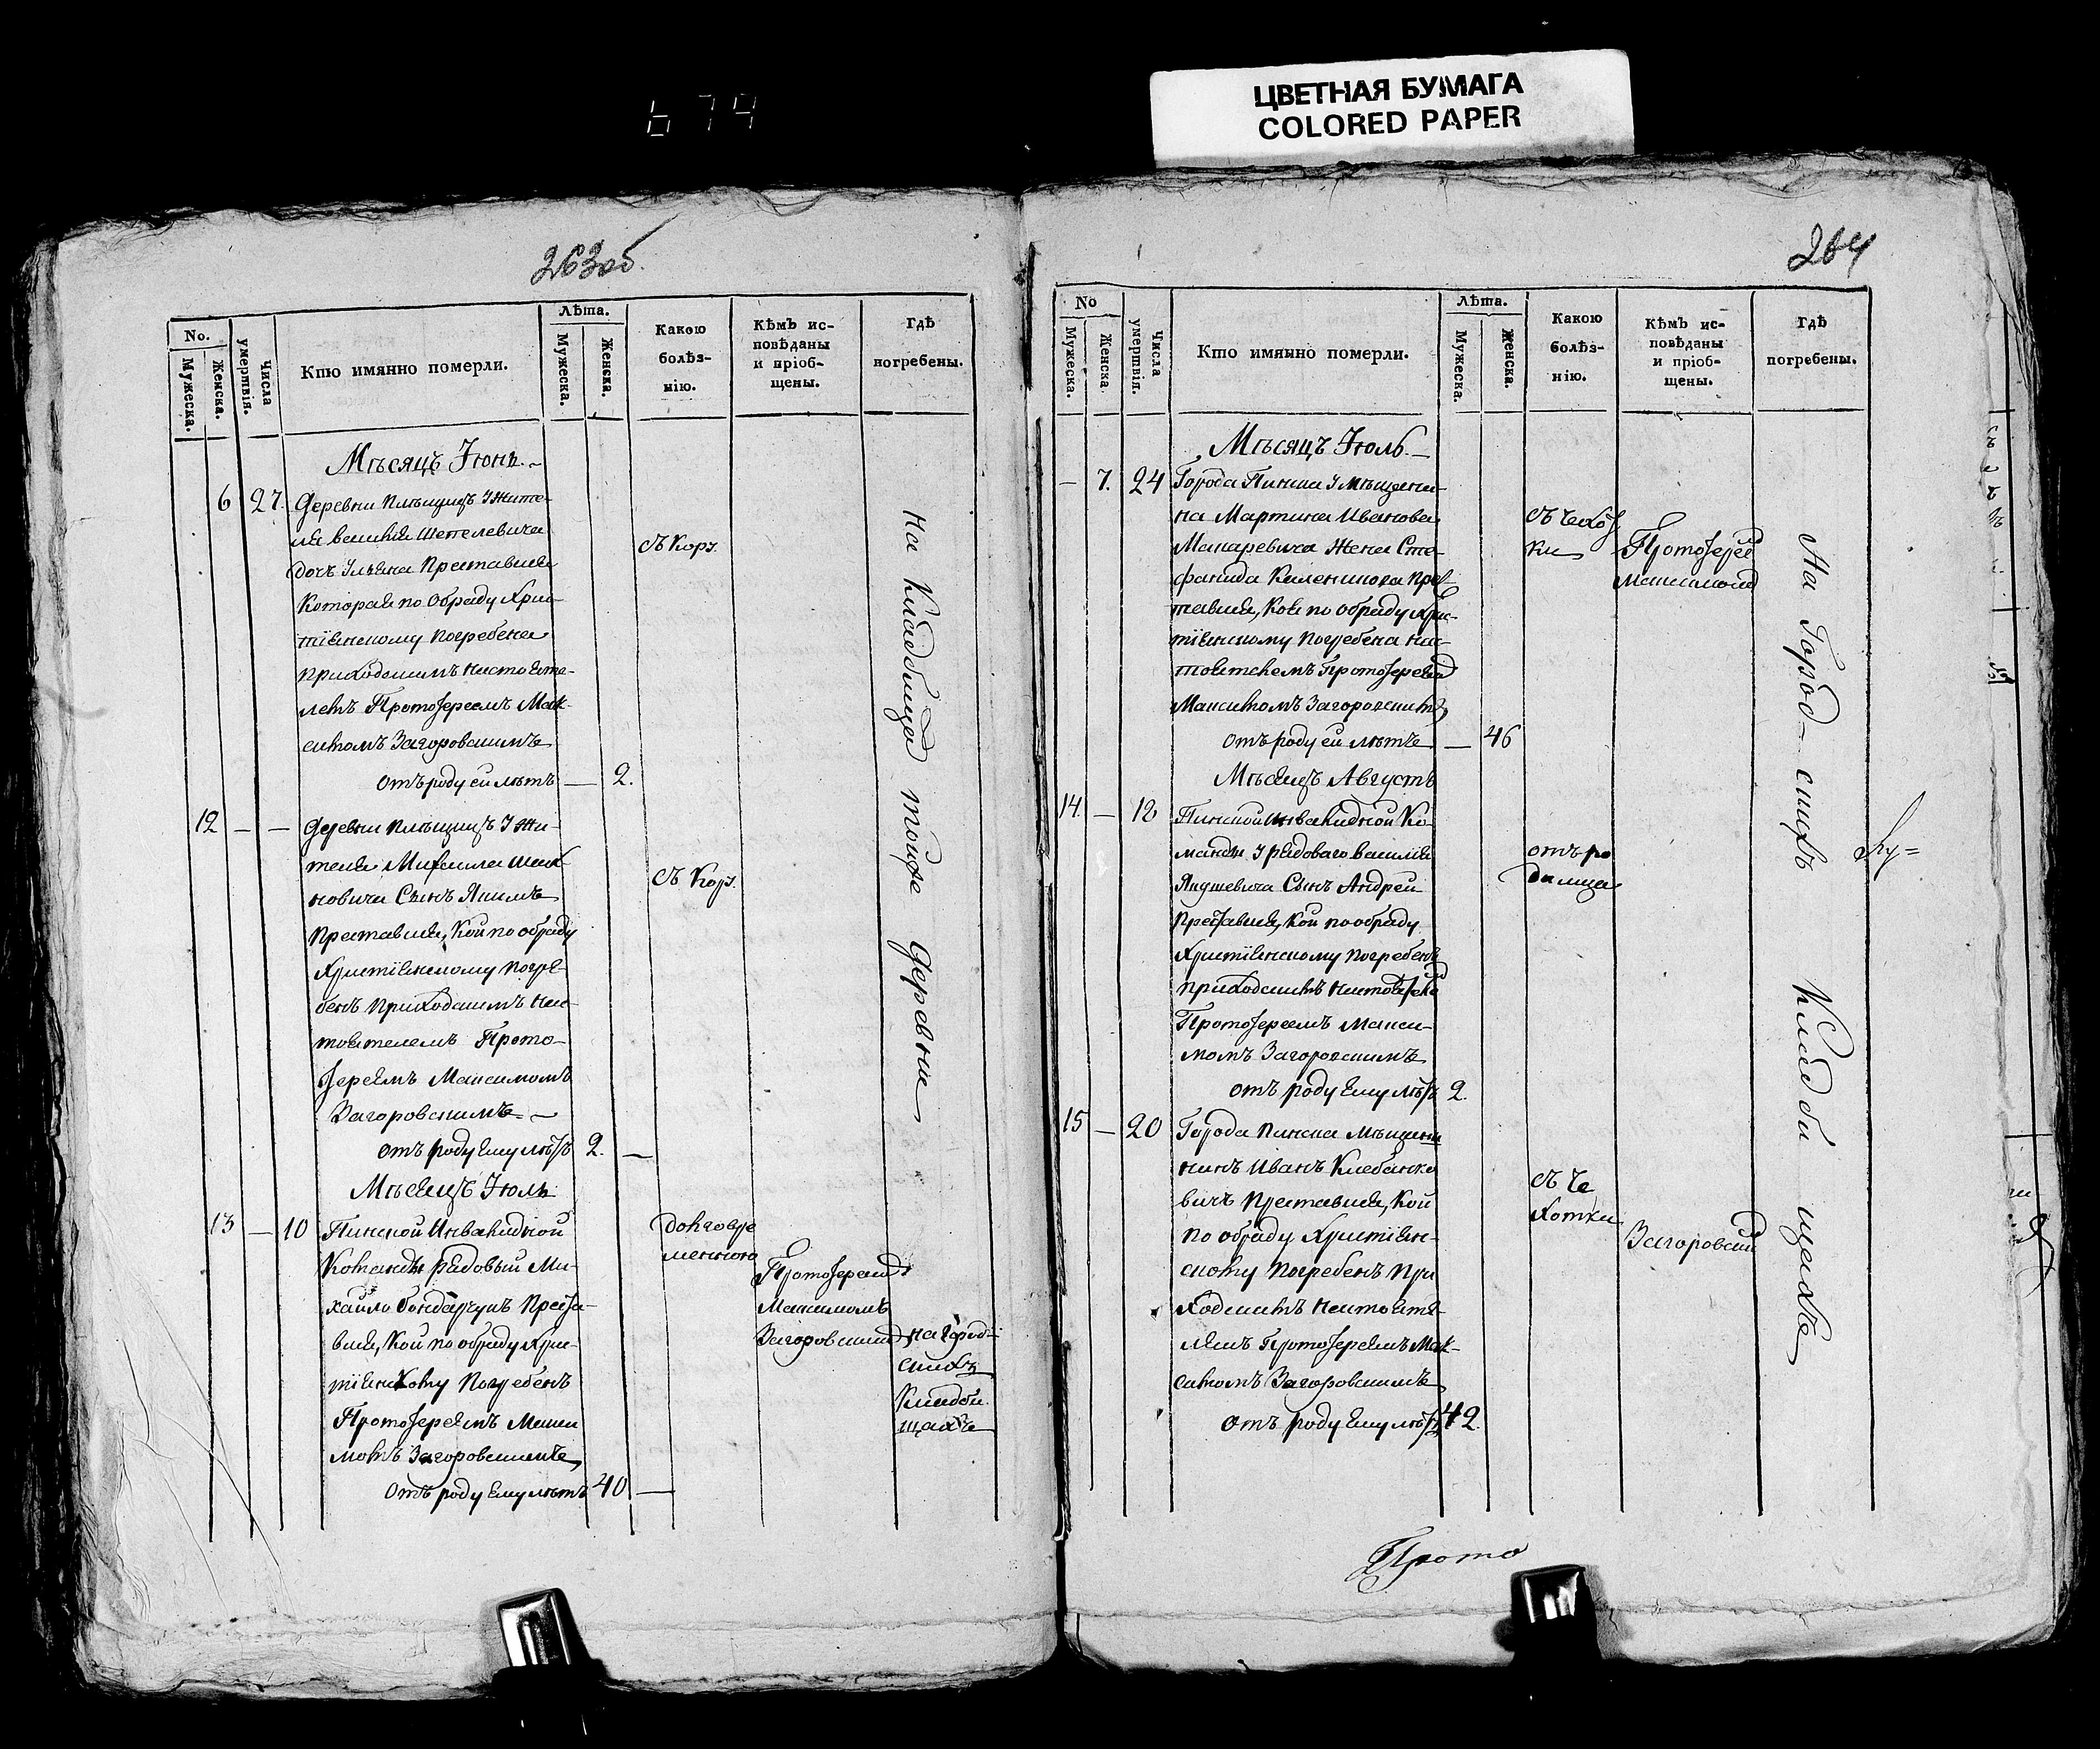 679
ЦВЕТНАЯ БУМАГА
COLORED PAPER
263об.
No.
Мужеска.
Женска.
Числа умертвія.
Кто имянно померли.
Лѣта.
Мужеска.
Женска.
Какою болѣз-
нію.
Кѣмъ ис-
повѣданы
и пріоб-
щены.
Гдѣ
погребены.
Мѣсяцъ Іюнь.
6 27. Деревни Плѣщицъ Жите-
ля
дочь Преставися
Которая по Обряду Хрис-
тіянскому Погребена
Приходскимъ Настояте-
лемъ Протоіереемъ Мак-
симомъ Загоровскимъ
отъ роду ей лѣтъ — 2.
съ кору.
12 — — Деревни Плѣщицъ Жи-
теля Михаила
новича Сынъ Якимъ
Преставися, Кой по обряду
Христіянскому Погре-
бенъ Приходскимъ Нас-
тоятелемъ Прото-
Іереямъ Максимомъ
Загоровскимъ
отъ роду Ему лѣтъ 2. —
съ Кору.
На Кладбищѣ тойже Деревни
Мѣсяцъ Іюль
13 — 10 Пинской Инвалидной
Команды рядовый Ми-
хайло Бондарчукъ Преста-
вися, Кой по обряду Хрис-
тіянскому Погребенъ
Протоіереямъ Макси
момъ Загоровскимъ
отъ роду Ему лѣтъ 40 —
долговре
менною
Протоіереямъ
Максимомъ
Загоровскимъ
на город-
скихъ
Кладби
щахъ
264
No
Мужеска.
Женска.
Числа умертвія.
Кто имянно померли.
Лѣта.
Мужеска.
Женска.
Какою
болѣз-
нію.
Кѣмъ ис-
повѣданы
и пріоб-
щены.
Гдѣ
погребены.
Мѣсяцъ Іюль.
— 7. 24 Города Пинска Мѣщани-
на Мартина Иванова
Макаревича Жена Сте-
фанида Каленикова Прес-
тавися, Коя по обряду Хрис-
тіянскому Погребена Нас-
тоятелемъ Протоіереямъ
Максимомъ Загоровскимъ
отъ роду ей лѣтъ — 46
съ чахот
ки
Протоіерей
Максимомъ
Мѣсяцъ Августъ
14. — 12 Пинской инвалидной Ко-
манды рядоваго Василія
Янушевича Сынъ Андрей
Преставися, Кой по обряду
Христіянскому Погребенъ
приходскимъ Настоятелемъ
Протоіереямъ Макси-
момъ Загоровскимъ
отъ роду Ему лѣтъ 2.
отъ ро
димца
15 — 20 Города Пинска Мѣщани
нинъ Иванъ Клебанко
вичъ Преставися, Кой
по обряду Христіян-
скому Погребенъ При
ходскимъ Настояте-
лямъ Протоіереямъ Мак-
симомъ Загоровскимъ
отъ роду Ему лѣтъ 42
съ Ча
хотки
Загоровскимъ
На Город-скихъ Кладби щахъ
Прото